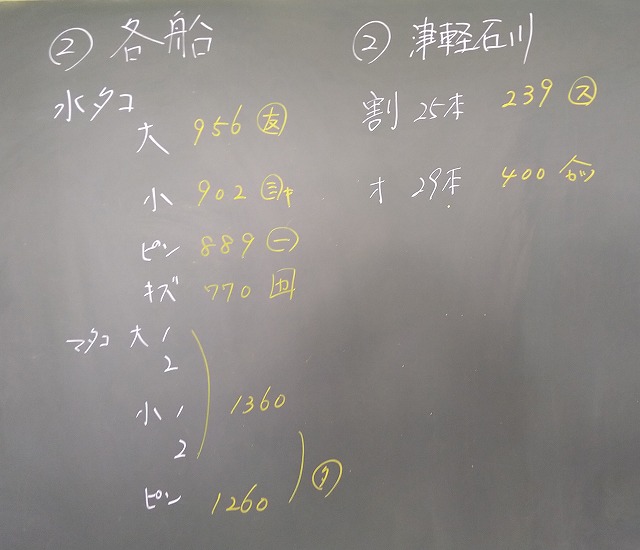 ② 各船
水タコ
大 956 友
小 902 ミヤ
ピン 889 一
キズ 770 カ
マタコ 大 1
2
小 1
1360
2
ピン 1260
② 津軽石川
割 25本 239 ス
オ 29本 400